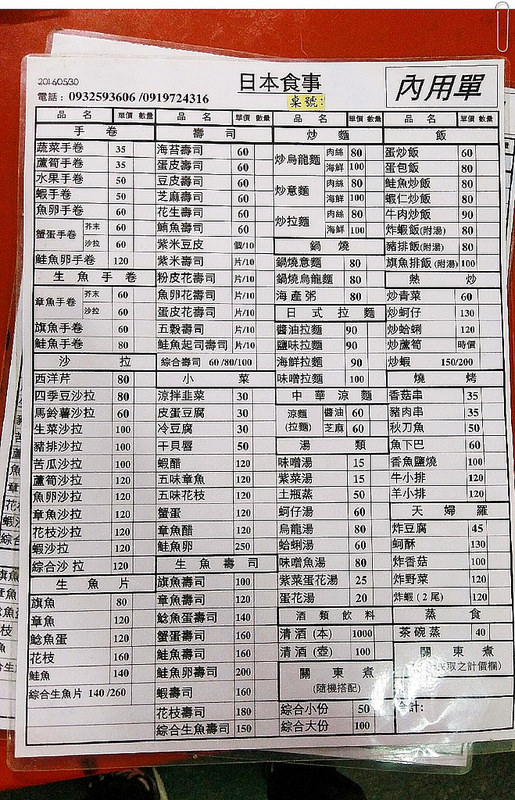 2014/05/30
日本食事
電話：0932593606 /0919724316
桌號:
內用單
品名 單價 數量
手卷
蔬菜手卷 35
蘆筍手卷 35
水果手卷 50
蝦手卷 50
魚卵手卷 60
蟹蛋手卷 芥末 60
沙拉 60
鮭魚卵手卷 120
生魚手卷
章魚手卷 芥末 60
沙拉 60
旗魚手卷 60
鮭魚手卷 80
沙拉
西洋芹 80
四季豆沙拉 80
馬鈴薯沙拉 60
生菜沙拉 100
豬排沙拉 100
苦瓜沙拉 100
蘆筍沙拉 120
魚卵沙拉 120
章魚沙拉 120
花枝沙拉 120
蝦沙拉 120
綜合沙拉 120
生魚片
旗魚 80
章魚 120
鯰魚蛋 120
花枝 160
鮭魚 140
綜合生魚片 140 /260
品名 單價 數量
壽司
海苔壽司 60
蛋皮壽司 60
豆皮壽司 60
芝麻壽司 60
花生壽司 60
鮪魚壽司 60
紫米豆皮 個/10
紫米壽司 片/10
粉皮花壽司 片/10
魚卵花壽司 片/10
蛋皮花壽司 片/10
五穀壽司 片/10
鮭魚起司壽司 片/10
綜合壽司 60 /80/100
小菜
涼拌韭菜 30
皮蛋豆腐 30
冷豆腐 30
干貝唇 50
蝦醋 120
五味章魚 120
五味花枝 120
蟹蛋 120
章魚醋 120
鮭魚卵 250
生魚壽司
旗魚壽司 100
章魚壽司 120
鯰魚蛋壽司 140
蟹蛋壽司 160
鮭魚壽司 160
鮭魚卵壽司 200
蝦壽司 160
花枝壽司 180
綜合生魚壽司 150
品名 單價 數量
炒麵
炒烏龍麵 肉絲 80
海鮮 100
炒意麵 肉絲 80
海鮮 100
炒拉麵 肉絲 80
海鮮 100
鍋燒
鍋燒意麵 80
鍋燒烏龍麵 80
海產粥 80
日式拉麵
醬油拉麵 90
鹽味拉麵 90
海鮮拉麵 90
味噌拉麵 100
中華涼麵
涼麵 醬油 60
(拉麵) 芝麻 60
湯類
味噌湯 15
紫菜湯 15
土瓶蒸 50
蚵仔湯 60
烏龍湯 80
蛤蜊湯 60
味噌魚湯 80
紫菜蛋花湯 25
蛋花湯 20
酒類飲料
清酒(本) 1000
清酒(壺) 100
關東煮
(隨機搭配)
綜合小份 50
綜合大份 100
品名 單價 數量
飯
蛋炒飯 60
蛋包飯 80
鮭魚炒飯 80
蝦仁炒飯 80
牛肉炒飯 90
炸蝦飯(附湯) 80
豬排飯(附湯) 80
旗魚排飯(附湯) 100
熱炒
炒青菜 60
炒蚵仔 130
炒蛤蜊 120
炒蘆筍 時價
炒蝦 150/200
燒烤
香菇串 35
豬肉串 35
秋刀魚 50
魚下巴 60
香魚鹽燒 100
牛小排 120
羊小排 120
天婦羅
炸豆腐 45
蚵酥 130
炸香菇 100
炸野菜 120
炸蝦(2尾) 120
蒸食
茶碗蒸 40
關東煮
取之計價欄)
合計: